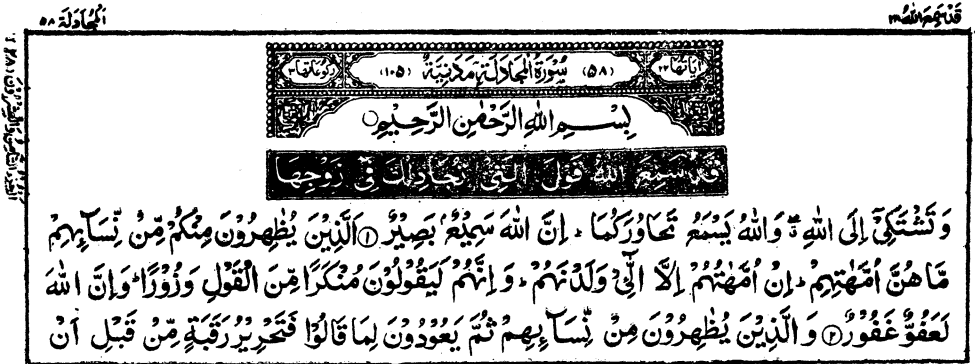 قد سمع الله ٢٨
المجادلة ٥٨
اٰیاتها ٢٢ (٥٨) سُوْرَةُ الْمُجَادَلَةِ مَدَنِيَّةٌ (١٠٥) رکوعاتها ٣
بِسْمِ اللّٰهِ الرَّحْمٰنِ الرَّحِيْمِ
قَدْ سَمِعَ اللّٰهُ قَوْلَ الَّتِيْ تُجَادِلُكَ فِيْ زَوْجِهَا
وَ تَشْتَكِيْۤ اِلَى اللّٰهِ ۖۗ وَ اللّٰهُ يَسْمَعُ تَحَاوُرَكُمَا ؕ اِنَّ اللّٰهَ سَمِيْعٌۢ بَصِيْرٌ ١ اَلَّذِيْنَ يُظٰهِرُوْنَ مِنْكُمْ مِّنْ نِّسَآىِٕهِمْ
مَّا هُنَّ اُمَّهٰتِهِمْ ؕ اِنْ اُمَّهٰتُهُمْ اِلَّا الّٰٓـِٔيْ وَلَدْنَهُمْ ؕ وَ اِنَّهُمْ لَيَقُوْلُوْنَ مُنْكَرًا مِّنَ الْقَوْلِ وَ زُوْرًا ؕ وَ اِنَّ اللّٰهَ
لَعَفُوٌّ غَفُوْرٌ ٢ وَ الَّذِيْنَ يُظٰهِرُوْنَ مِنْ نِّسَآىِٕهِمْ ثُمَّ يَعُوْدُوْنَ لِمَا قَالُوْا فَتَحْرِيْرُ رَقَبَةٍ مِّنْ قَبْلِ اَنْ